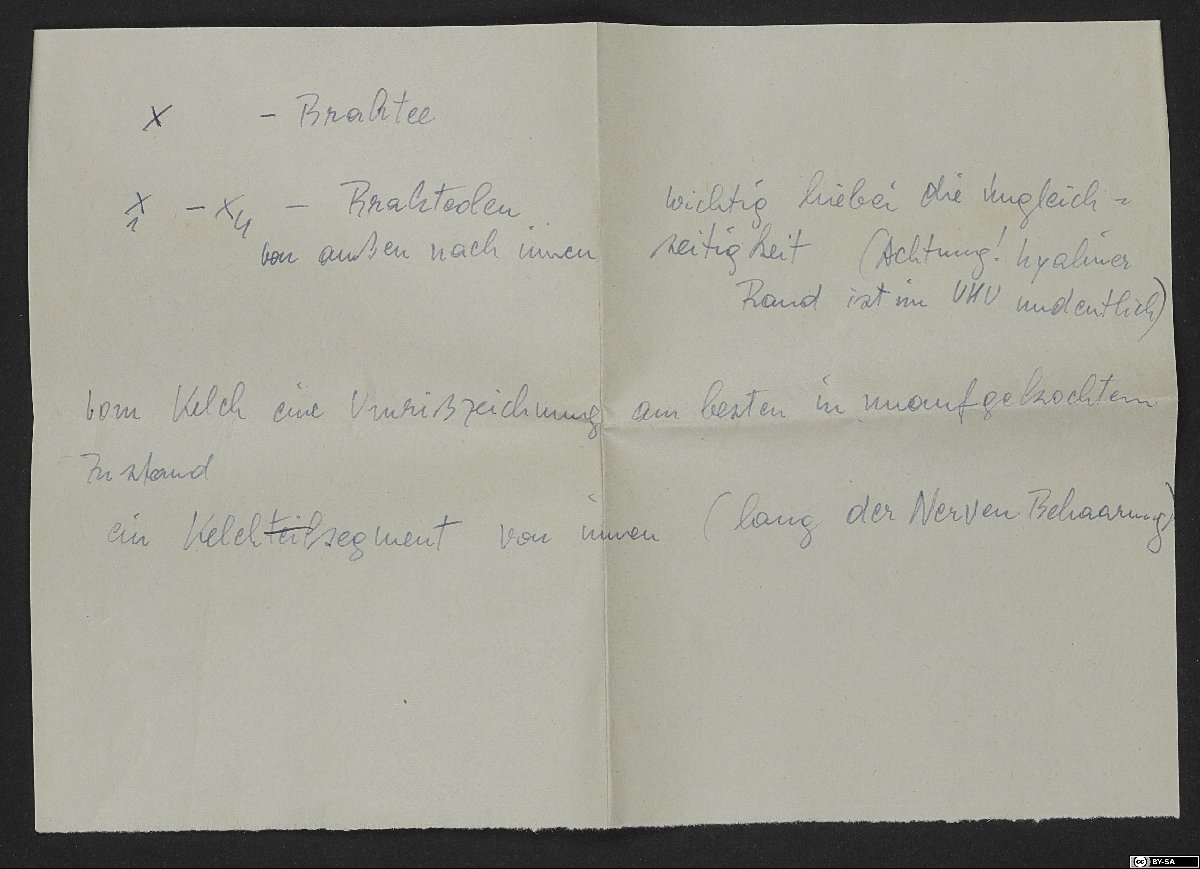 x - Braktee
x1 - x4 - Brakteolen wichtig hiebei die Ungleich-
von außen nach innen seitigkeit (Achtung! hyaliner
Rand ist im undeutlich)
vom Kelch eine Umrißzeichnung am besten in unaufgekochtem
Zustand
ein Kelchteilsegment von innen (lang der Nerven Behaarung)
BY-SA